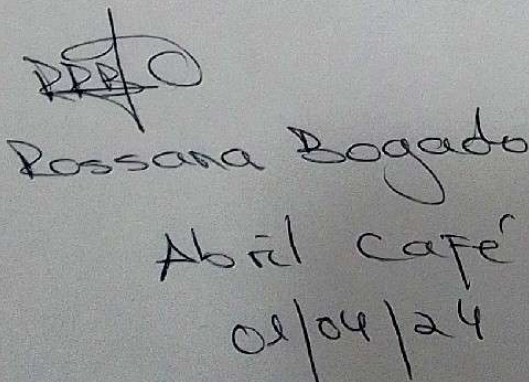 Rossana Bogado
Abril Café
01/04/24